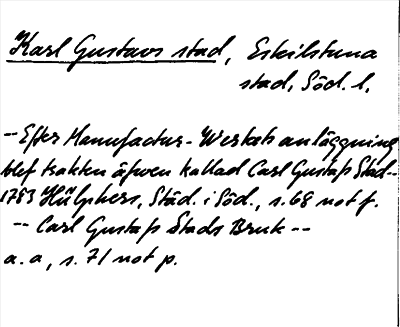 Karl Gustavs stad, Eskilstuna
stad, Söd. l.
-- Efter Manufactur-Werkets anläggning
blef trakten äfwen kallad Carl Gustafs Stad --
1783 Hülphers, Städ. i Söd., s. 68 not f.
-- Carl Gustafs Stads Bruk --
a. a, s. 71 not p.